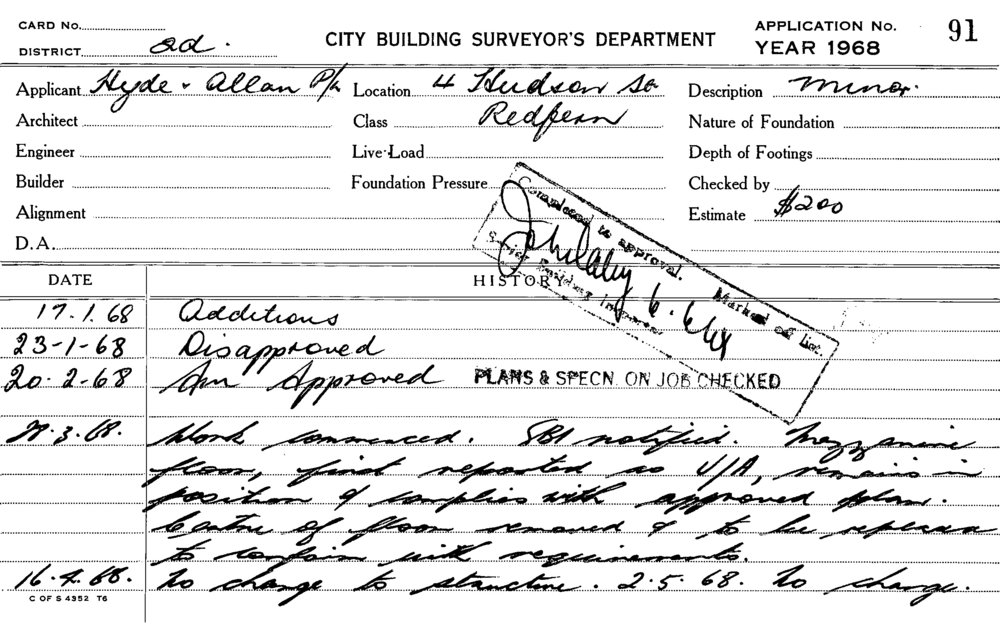 CARD No.
DISTRICT ad.
CITY BUILDING SURVEYOR'S DEPARTMENT
APPLICATION No. 91
YEAR 1968
Applicant Hyde & Allan P/L Location 4 Hudson St Description Minor.
Architect Class Redfern Nature of Foundation
Engineer Live-Load Depth of Footings
Builder Foundation Pressure Checked by
Alignment Estimate $200
D.A.
Completed to approval. Marked off list.
6.6.68
Senior Building Inspector
DATE HISTORY
17.1.68 Additions
23-1-68 Disapproved
20.2-68 Am Approved PLANS & SPECN. ON JOB CHECKED
.3.68. Work commenced. SBI notified. Mezzanine
floor, first reported as U/A, remains in
position & complies with approved plan.
of floor removed & to be
to conform with requirements.
16.4.68. No change to structure. 2.5.68. No change.
C OF S 4352 T6